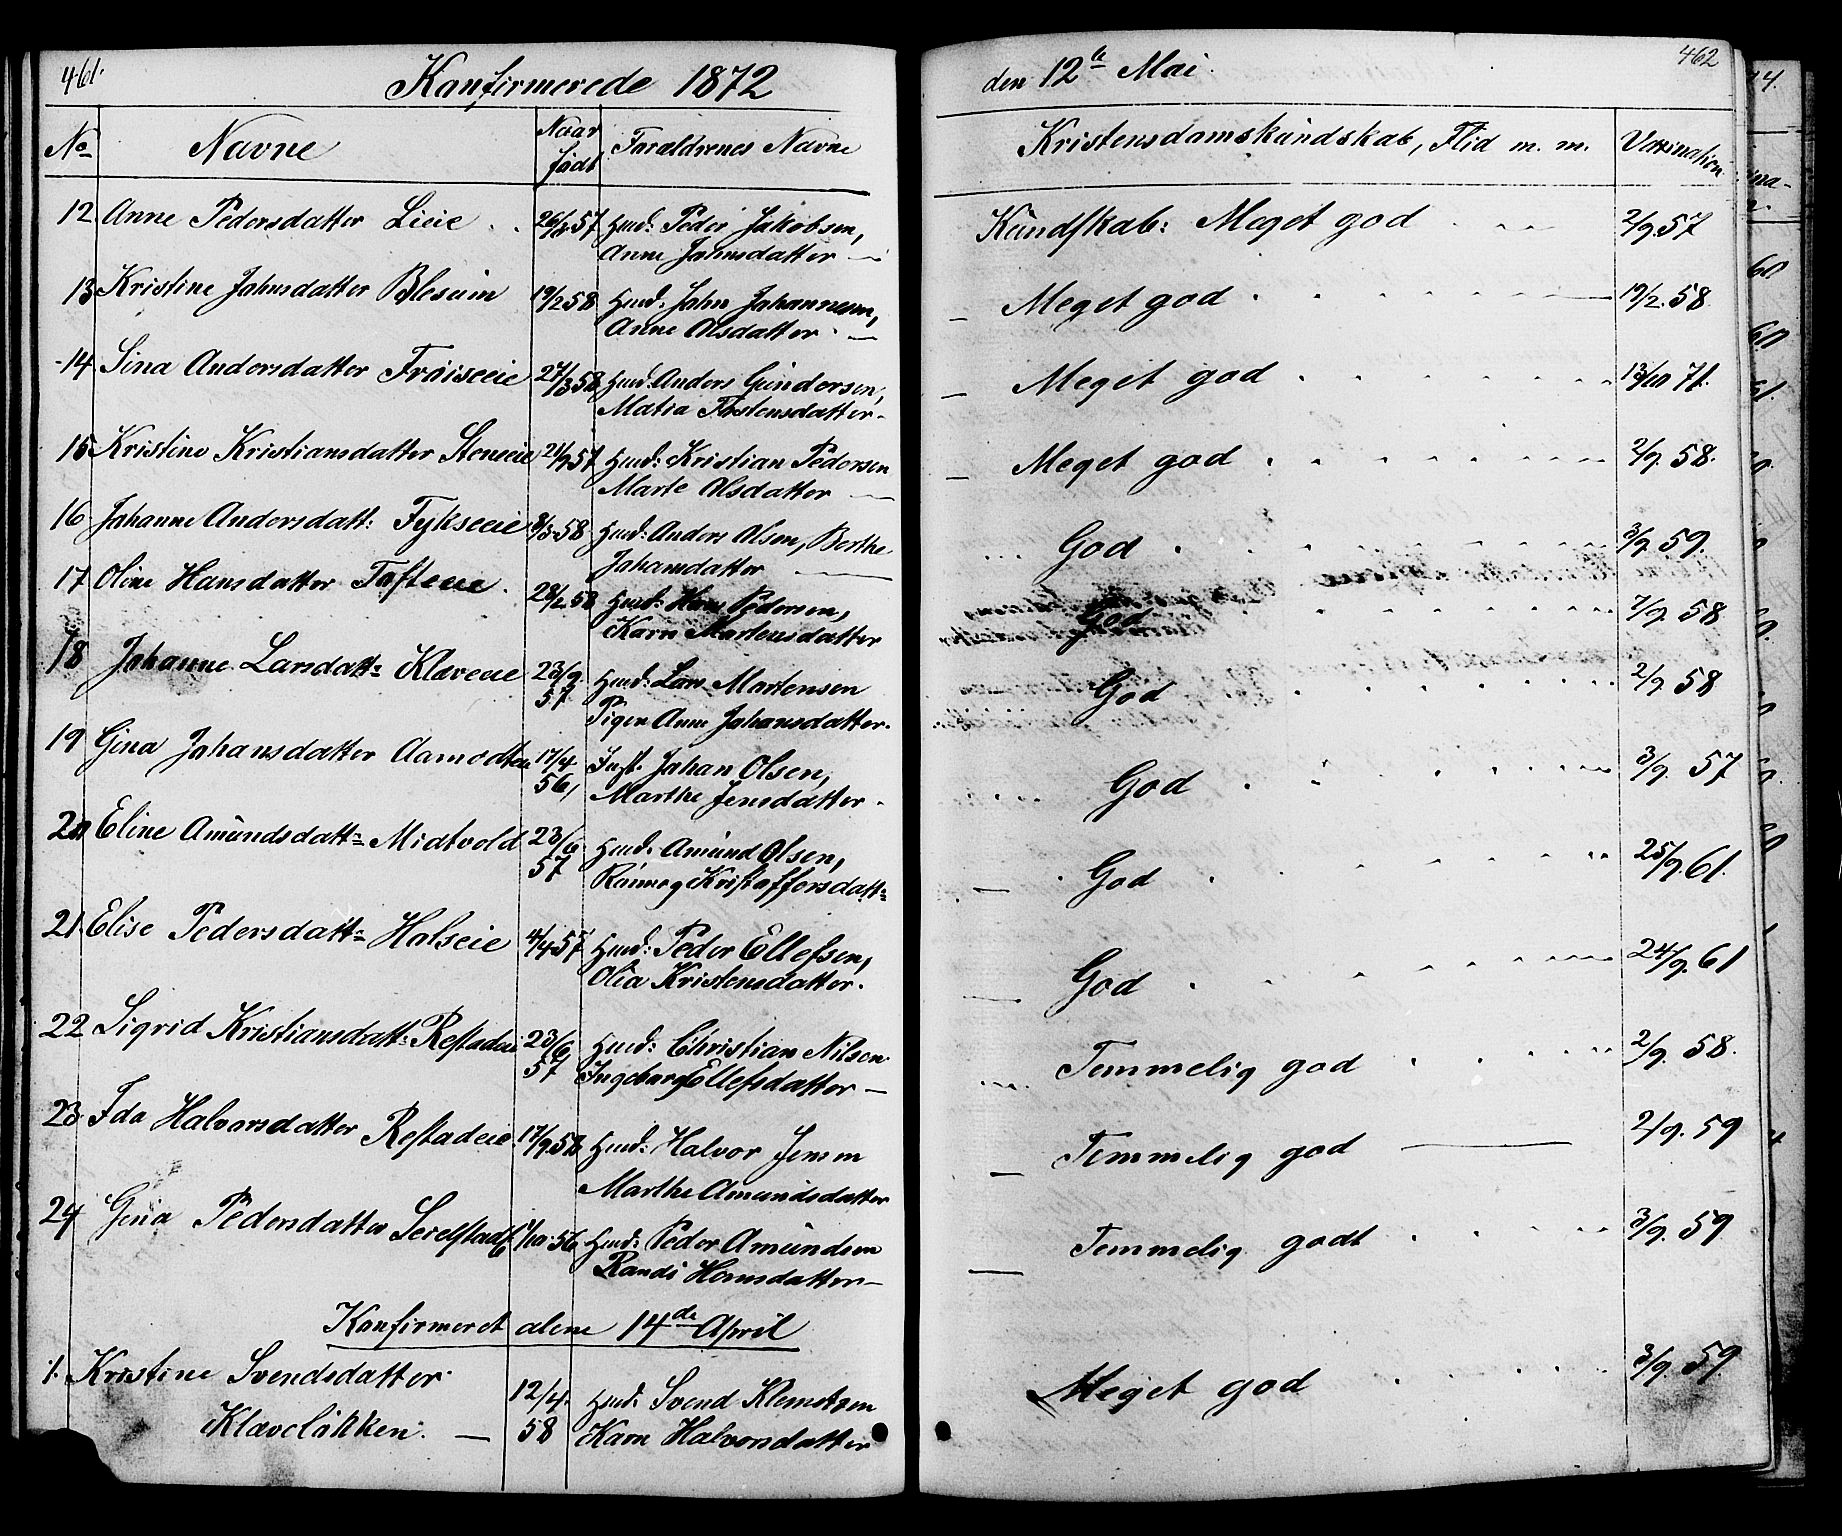 461.
Konfirmerede 1872
No
Navne
Naar født
Foreldrenes Navne
12. Anne Pedersdatter Lieie 57 Husd: Peder Jakobsen,
Anne Johnsdatter
13 Kristine Johnsdatter Blesum 19/2 58 Husd: John Johannesen,
Anne Olsdatter
14 Sina Andersdatter Frøiseeie 27/3 58 Husd: Anders Gundersen,
Matia Tostensdatter
15 Kristine Kristiansdatter Steneeie 21/9 57 Husd: Kristian Pedersen
Marte Olsdatter
16 Johanne Andersdatt: Fykseeie 8/3 58 Husd: Anders Olsen, Berthe
Johansdatter
17. Oline Hansdatter Tofteeie 28/2 58 Husd: Hans Pedersen,
Karn Martensdatter
18 Johanne Larsdatt= Klæveeie 23/9. Husd: Lars Martensen
57 Pigen Anne Johansdatter.
19 Gina Johansdatter Aamodteie 17/4 Inst. Johan Olsen,
56, Marthe Jensdatter.
20 Eline Amundsdatt= Midtvold 23/6 Husd: Amund Olsen,
57 Rønnog Kristoffersdatt=
21. Elise Pedersdatt= Holseie 4/4 57 Husd: Peder Ellefsen,
Olia Kristensdatter.
22 Sigrid Kristiansdatt: Røstadeie 23/6 Husd: Christian Nilsen
57 Ingeborg Ellefsdatter
23. Ida Halvorsdatter Røstadeie 17/9. 58 Husd: Halvor Jensen
Marthe Amundsdatter
24 Gina Pedersdatter 56 Husd: Peder Amundsen
Randi Hansdatter
Konfirmeret alene 14de April
1. Kristine Svendsdatter 12/4. Husd: Svend Klemetsen
Klæveløkken. 58 Karn Halvorsdatter
den 12te Mai.
462
Kristendomskundskab, Flid m. m.
Vaxination
Kundskab: Meget god 2/9. 57
Meget god 19/2. 58
Meget god 13/10 71.
Meget god 2/9. 58.
God 3/9. 59.
God 7/9. 58
God 2/9. 58
God 3/9. 57
God 25/9. 61.
God 24/9. 61
Temmelig god 2/9. 58.
Temmelig god 2/9. 59
Temmelig godt 3/9. 59
Meget god 3/9. 59.